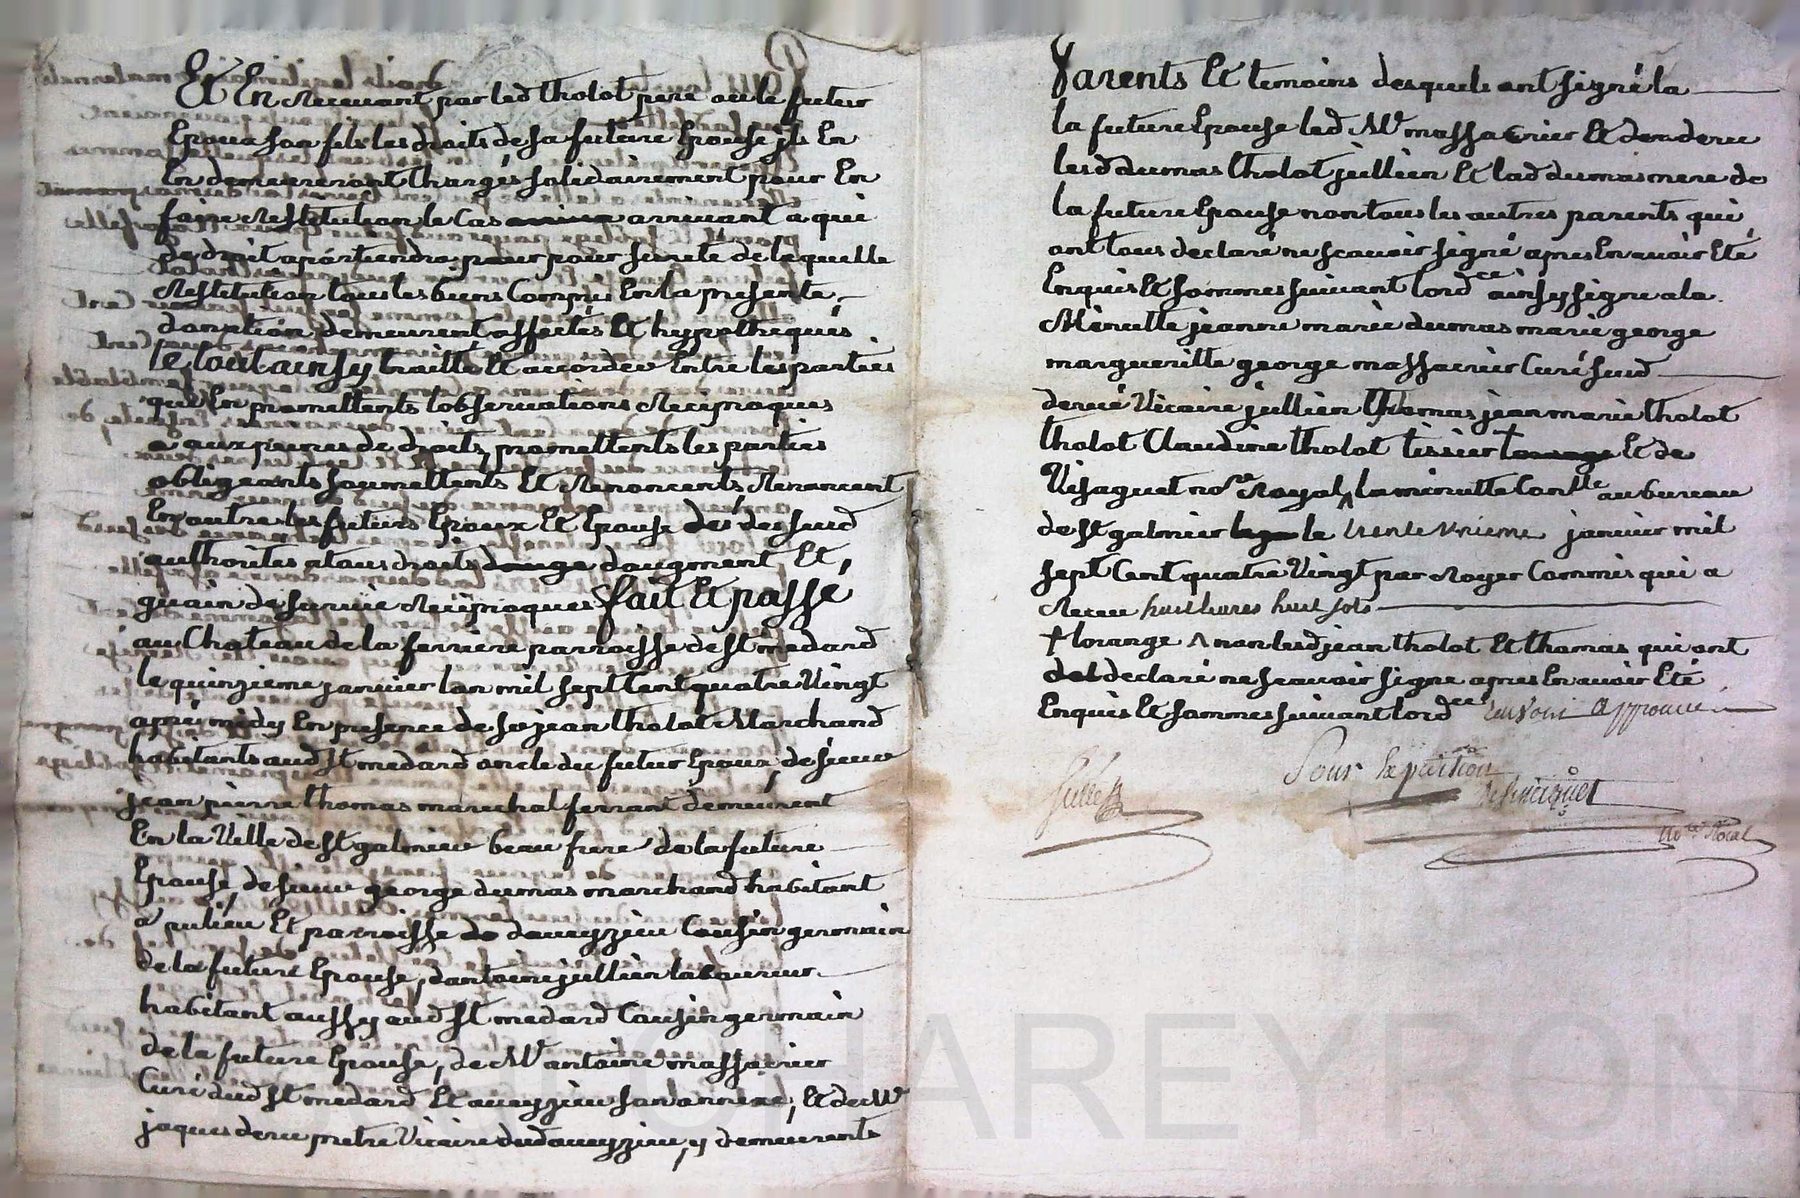 Et En Recevant par led tholot pere ou le futur
Epoux son fils les droits de sa future Epouse ils En
En demeureront Chargés solidairement pour En
faire Restitution le Cas arrivant a qui
de droit apartiendra pour pour sureté de lequelle
Restitution tous les biens Compris En la presente
donation demeurent affectés Et hypothequés
le tout ainsy traitté Et accordéé Entre les parties
qui En promettents lobservations Reciproques
a aux peines de droits, promettents les parties
obligeants soumettents Et Renoncents Renoncent
En outre les futurs Epoux Et Epouse des desud
authorités a tous droits daugment Et,
guain de survie Reciproques fait Et passé
au Chateau de la ferriere parroisse de St medard
le quinzieme janvier lan mil sept Cent quatre Vingt
apres midy En presence de sr jean tholot Marchand
habitants aud St medard oncle du futur Epoux, de sieur
jean pierre thomas marechal ferrant demeurent
En la Ville de St galmier beau frere de la future
Epouse, de sieur george dumas marchand habitant
a Et parroisse de daveyzieu Cousin germain
de la future Epouse, dantoine jullien laboureur
habitant aussy aud St medard Cousin germain
de la future Epouse, de Mr antoine massacrier
Curé dud St medard Et aveyzieu son annexe, Et de Mr
jaques derue pretre Vicaire dud aveyzieu, y demeurents
Parents Et temoins desquels ont signé la
la future Epouse led Mr massacrier Et dou derue
lesd dumas tholot jullien Et lad dumas mere de
la future Epouse non tous les autres parents qui
ont tous declaré ne scavoir signé apres En avoir Eté
Enquis Et sommes suivant lordce ainsy signe a la
Minutte jeanne marie dumas marie george
margueritte george massacrier Curé sud
derue Vicaire jullien thomas jean marie tholot
tholot Claudine tholot tissier Et de
Visaguet nore Royal, la minutte Contlle au bureau
de St galmier le trente unieme janvier mil
sept Cent quatre Vingt par Royer Commis qui a
Receu huit livres huit sols
+ lorange ^ non lesd jean tholot Et thomas qui ont
declaré ne scavoir signe apres En avoir Eté
Enquis Et sommes suivant lordce renvoi approuvé
Pour Expedition
nore Roial
CHAREYRON